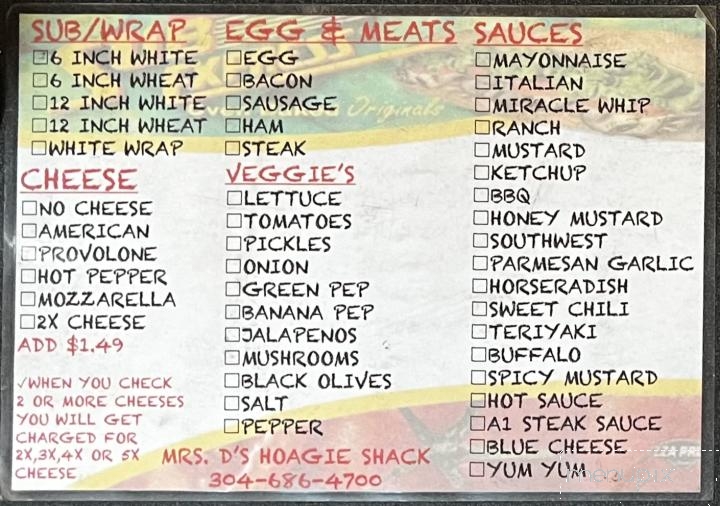 SUB/WRAP
☐6 INCH WHITE
☐6 INCH WHEAT
☐12 INCH WHITE
☐12 INCH WHEAT
☐WHITE WRAP
CHEESE
☐NO CHEESE
☐AMERICAN
☐PROVOLONE
☐HOT PEPPER
☐MOZZARELLA
☐2X CHEESE
ADD $1.49
✓WHEN YOU CHECK
2 OR MORE CHEESES
YOU WILL GET
CHARGED FOR
2X,3X,4X OR 5X
CHEESE
EGG & MEATS
☐EGG
☐BACON
☐SAUSAGE
☐HAM
☐STEAK
Originals
VEGGIE'S
☐LETTUCE
☐TOMATOES
☐PICKLES
☐ONION
☐GREEN PEP
☐BANANA PEP
☐JALAPENOS
☐MUSHROOMS
☐BLACK OLIVES
☐SALT
☐PEPPER
SAUCES
☐MAYONNAISE
☐ITALIAN
☐MIRACLE WHIP
☐RANCH
☐MUSTARD
☐KETCHUP
☐BBQ
☐HONEY MUSTARD
☐SOUTHWEST
☐PARMESAN GARLIC
☐HORSERADISH
☐SWEET CHILI
☐TERIYAKI
☐BUFFALO
☐SPICY MUSTARD
☐HOT SAUCE
☐A1 STEAK SAUCE
☐BLUE CHEESE
☐YUM YUM
MRS. D'S HOAGIE SHACK
304-686-4700